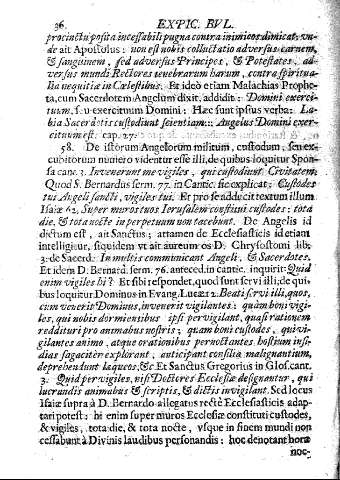 36. EXPIC. BVL.
procinctu posita incessabili pugna contra inimicos dimicat, vn-
de ait Apostolus: non est nobis colluctatio adversus carnem,
& sanguinem, sed adversus Principes, & Potestates, ad-
versus mundi Rectores tenebrarum harum, contra spiritua-
lia nequitiæ in Cœlestibus. Et ideò etiam Malachias Prophe-
ta, cum Sacerdotem Angelum dixit, addidit: Domini exerci-
tuum, seu exercituum Domini: Hæc sunt ipsius verba: La-
bia Sacerdotis custodiunt scientiam; Angelus Domini exer-
cituum est. cap. 27.
58. De istorum Angelorum militum, custodum, seu ex-
cubitorum numero videntur esse illi, de quibus loquitur Spon-
sa can. 3. Invenerunt me vigiles, qui custodiunt Civitatem.
Quod S. Bernardus serm. 77. in Cantic. sic explicat; Custodes
tui Angeli sancti, vigiles tui. Et pro se adducit textum illum
Isaiæ 62. Super muros tuos Ierusalem constitui custodes: tota
die, & tota nocte in perpetuum non tacebunt. De Angelis id
dictum est, ait Sanctus; attamen de Ecclesiasticis id etiam
intelligitur, siquidem vt ait aureum os D. Chrysostomi lib.
3. de Sacerd. In multis communicant Angeli, & Sacerdotes.
Et idem D. Bernard. serm. 76. anteced. in cantic. inquirit: Quid
enim vigiles hi? Et sibi respondet, quod sunt servi illi, de qui-
bus loquitur Dominus in Evang. Lucæ 12. Beati servi illi, quos,
cum venerit Dominus, invenerit vigilantes: quàm boni vigi-
les, qui nobis dormientibus ipsi pervigilant, quasi rationem
reddituri pro animabus nostris; quam boni custodes, qui vi-
gilantes animo, atque orationibus pernoctantes hostium insi-
dias sagaciter explorant, anticipant consilia malignantium,
deprehendunt laqueos, &c Et Sanctus Gregorius in Glos. cant.
3. Quid per vigiles, nisi Doctores Ecclesiæ designantur, qui
lucrandis animabus & scriptis, & dictis invigilant. Sed locus
Isaiæ supra à D. Bernardo allegatus rectè Ecclesiasticis adap-
tari potest: hi enim super muros Ecclesiæ constituti custodes,
& vigiles, tota die, & tota nocte, vsque in finem mundi non
cessabunt à Divinis laudibus personandis: hoc denotant horæ
noc-